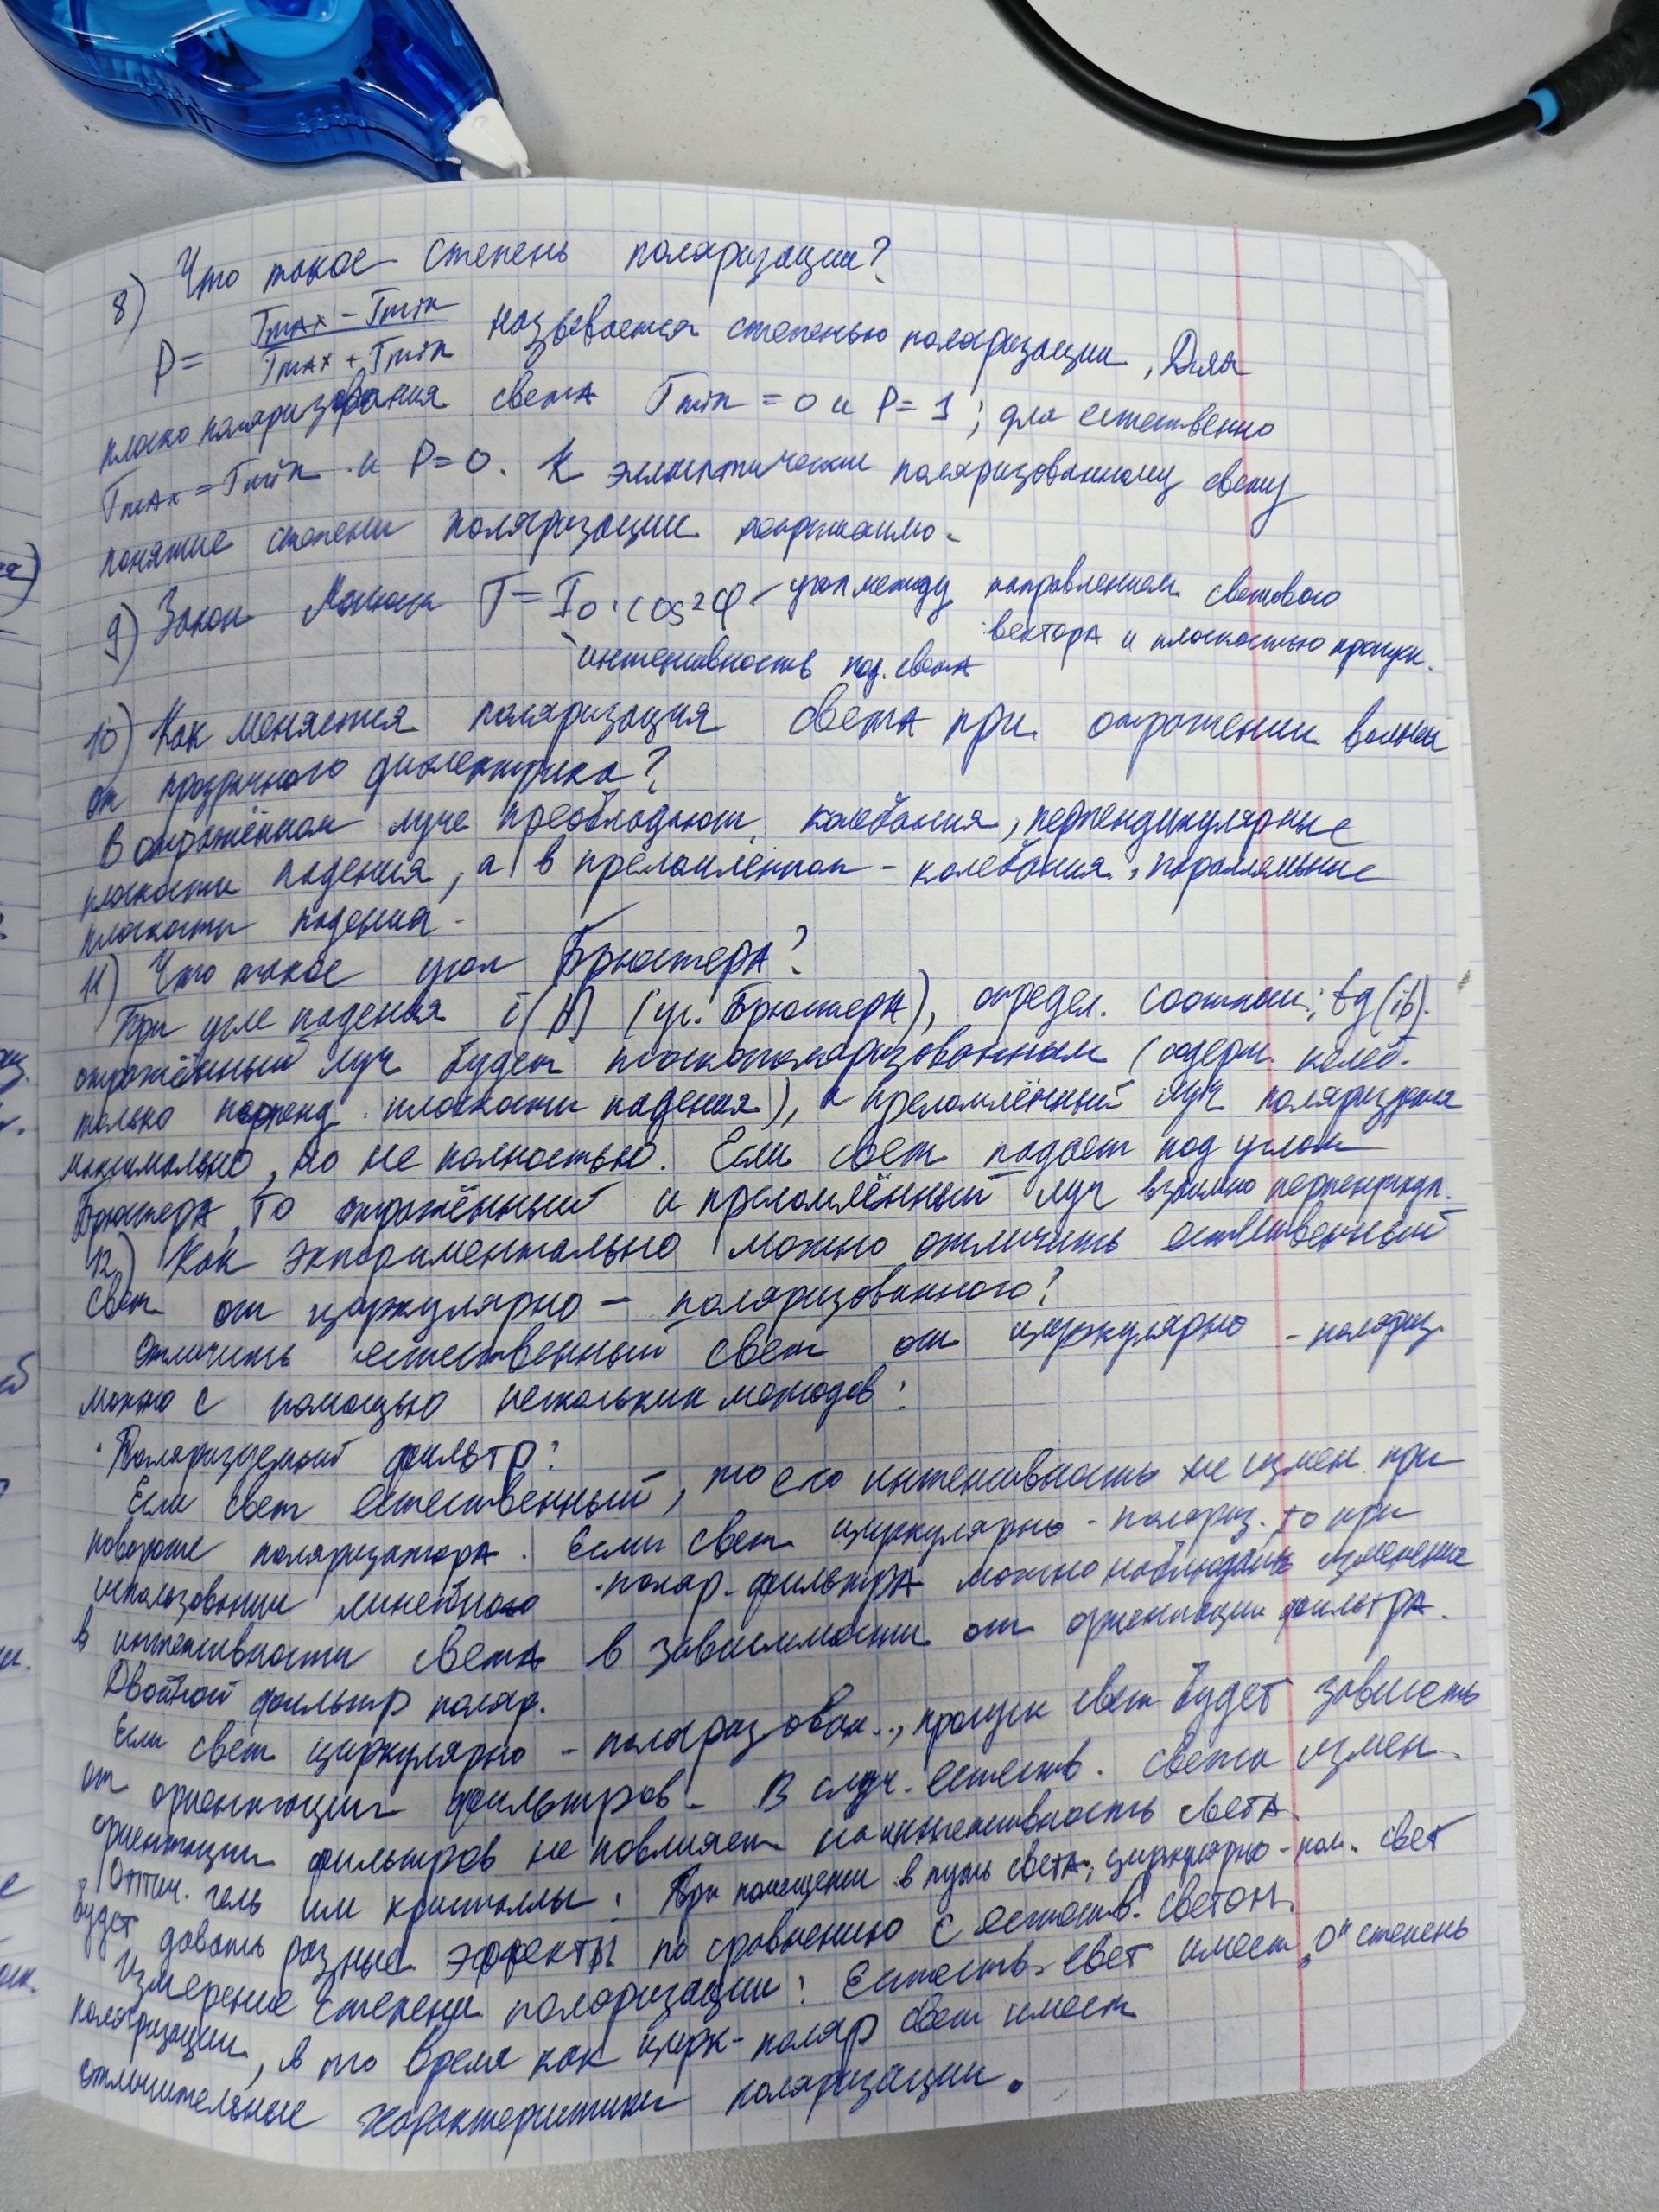 8) Что такое степень поляризации?
P = (Imax - Imin)/(Imax + Imin) называется степенью поляризации, Для
плоско поляризования света Imin = 0 и P = 1; для естественно
Imax = Imin и P = 0. К эллиптически поляризованному свету
понятие степени поляризации неприменимо.
9) Закон Малюса I = I0 · cos²φ - угол между направлением светового
вектора и плоскостью пропуск.
интенсивность пад. света
10) Как меняется поляризация света при отражении волны
от прозрачного диэлектрика?
В отражённом луче преобладают колебания, перпендикулярные
плоскости падения, а в преломлённом - колебания, параллельные
плоскости падения.
11) Что такое угол Брюстера?
При угле падения i(b) (уг. Брюстера), определ. соотнош: tg(ib).
отражённый луч будет плоскополяризованным (содерж. колеб.
только перпенд. плоскости падения), а преломлённый луч поляризуется
максимально, но не полностью. Если свет падает под углом
Брюстера, то отражённый и преломлённый луч взаимно перпендикул.
12) Как экпериментально можно отличить естественный
свет от циркулярно - поляризованного?
Отличить естественный свет от циркулярно - поляриз
можно с помощью нескольких методов:
· Поляризуемый фильтр:
Если свет естественный, то его интенсивность не измен. при
повороте поляризатора. Если свет циркулярно - поляриз. то при
использовании линейного поляр. фильтра можно наблюдать изменение
в интенсивности света в зависимости от ориентации фильтра.
Двойной фильтр поляр.
Если свет циркулярно - поляризован.., пропуск свет будет зависеть
от ориентации фильтров. В случ. естеств. света измен.
ориентации фильтров не повлияет на интенсивность света.
Оптич. гель или кристаллы: При помещении в путь света, циркулярно-пол. свет
будет давать разные эффекты по сравнению с естеств. светом.
Измерение степени поляризации: Естеств. свет имеет „0" степень
поляризации, в то время как цирк-поляр свет имеет
отличительные характеристики поляризации.